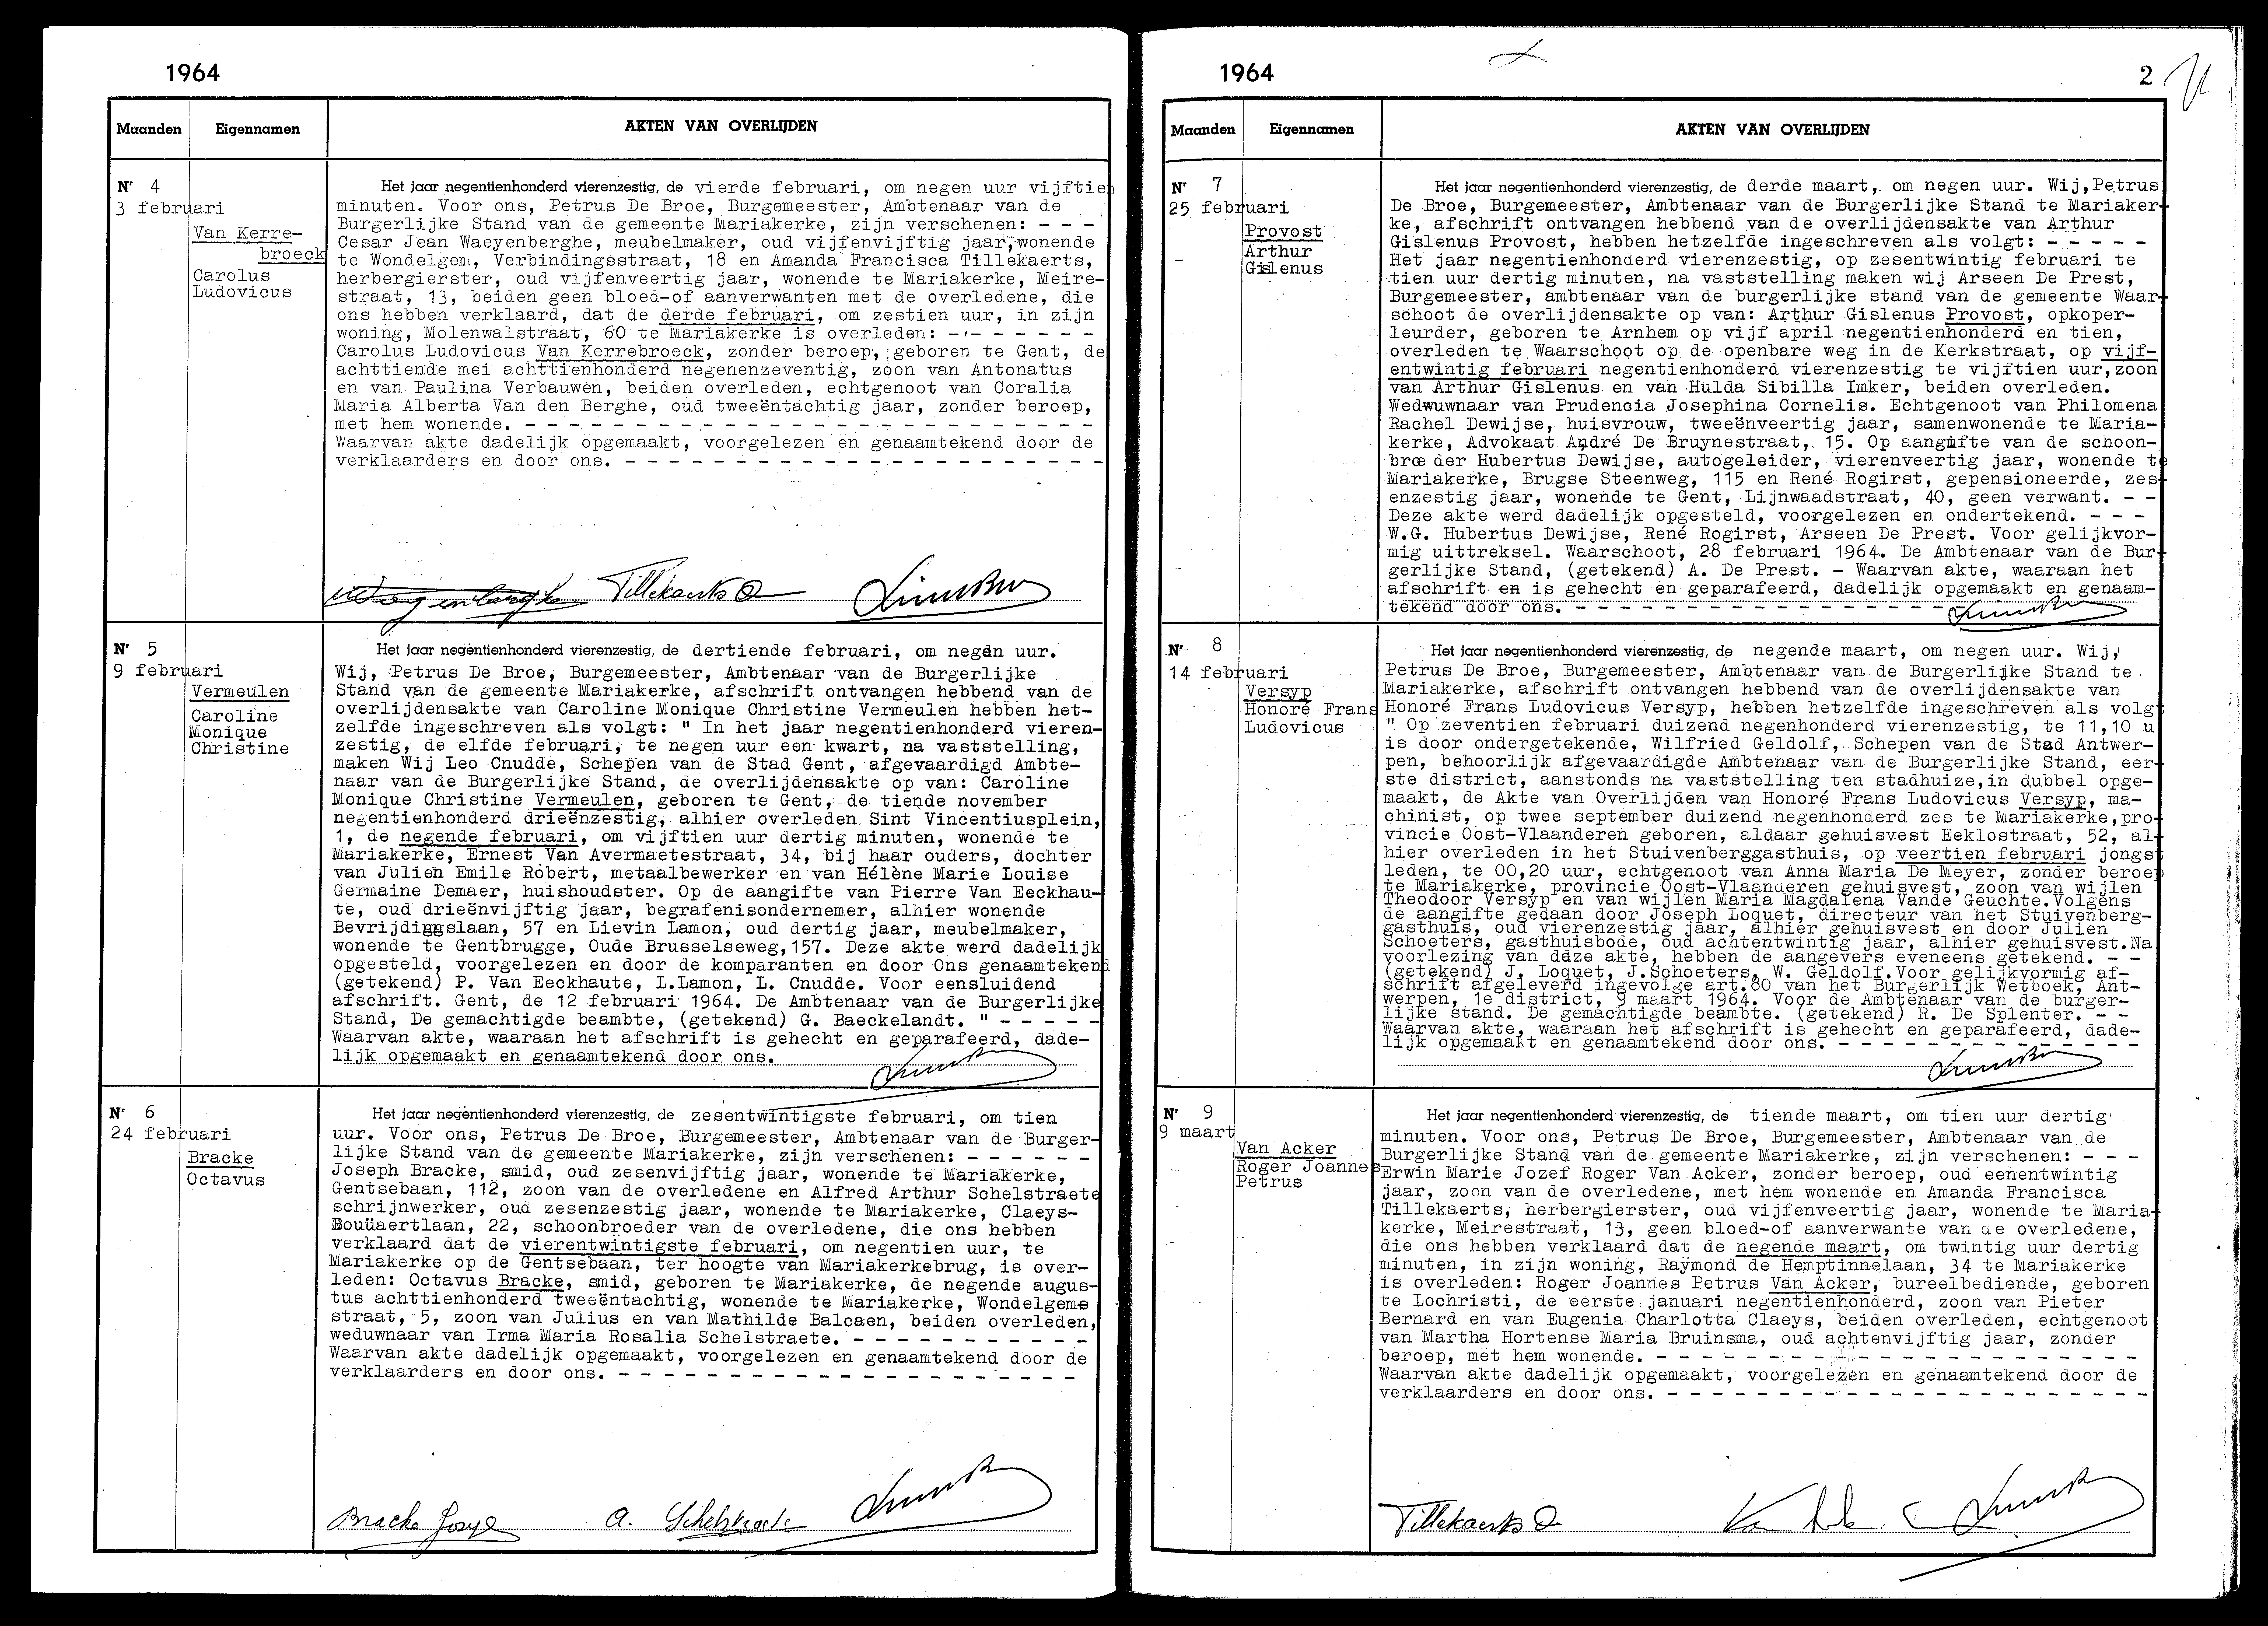 1964
Maanden Eigennamen AKTEN VAN OVERLIJDEN
Nr 4
3 februari
Van Kerre-
broeck
Carolus
Ludovicus
Het jaar negentienhonderd vierenzestig, de vierde februari, om negen uur vijftien
minuten. Voor ons, Petrus De Broe, Burgemeester, Ambtenaar van de
Burgerlijke Stand van de gemeente Mariakerke, zijn verschenen: - - -
Cesar Jean Waeyenberghe, meubelmaker, oud vijfenvijftig jaar, wonende
te Wondelgem, Verbindingsstraat, 18 en Amanda Francisca Tillekaerts,
herbergierster, oud vijfenveertig jaar, wonende te Mariakerke, Meire-
straat, 13, beiden geen bloed-of aanverwanten met de overledene, die
ons hebben verklaard, dat de derde februari, om zestien uur, in zijn
woning, Molenwalstraat, 60 te Mariakerke is overleden: - - - - - - - -
Carolus Ludovicus Van Kerrebroeck, zonder beroep, geboren te Gent, de
achttiende mei achttienhonderd negenenzeventig, zoon van Antonatus
en van Paulina Verbauwen, beiden overleden, echtgenoot van Coralia
Maria Alberta Van den Berghe, oud tweeëntachtig jaar, zonder beroep,
met hem wonende. - - - - - - - - - - - - - - - - - - - - - - - - - -
Waarvan akte dadelijk opgemaakt, voorgelezen en genaamtekend door de
verklaarders en door ons. - - - - - - - - - - - - - - - - - - - - - -
Tillekaerts
Nr 5
9 februari
Vermeulen
Caroline
Monique
Christine
Het jaar negentienhonderd vierenzestig, de dertiende februari, om negen uur.
Wij, Petrus De Broe, Burgemeester, Ambtenaar van de Burgerlijke
Stand van de gemeente Mariakerke, afschrift ontvangen hebbend van de
overlijdensakte van Caroline Monique Christine Vermeulen hebben het-
zelfde ingeschreven als volgt: " In het jaar negentienhonderd vieren-
zestig, de elfde februari, te negen uur een kwart, na vaststelling,
maken Wij Leo Cnudde, Schepen van de Stad Gent, afgevaardigd Ambte-
naar van de Burgerlijke Stand, de overlijdensakte op van: Caroline
Monique Christine Vermeulen, geboren te Gent, de tiende november
negentienhonderd drieënzestig, alhier overleden Sint Vincentiusplein,
1, de negende februari, om vijftien uur dertig minuten, wonende te
Mariakerke, Ernest Van Avermaetestraat, 34, bij haar ouders, dochter
van Julien Emile Robert, metaalbewerker en van Hélène Marie Louise
Germaine Demaer, huishoudster. Op de aangifte van Pierre Van Eeckhau-
te, oud drieënvijftig jaar, begrafenisondernemer, alhier wonende
Bevrijdiggslaan, 57 en Lievin Lamon, oud dertig jaar, meubelmaker,
wonende te Gentbrugge, Oude Brusselseweg, 157. Deze akte werd dadelijk
opgesteld, voorgelezen en door de komparanten en door Ons genaamtekend
(getekend) P. Van Eeckhaute, L.Lamon, L. Cnudde. Voor eensluidend
afschrift. Gent, de 12 februari 1964. De Ambtenaar van de Burgerlijke
Stand, De gemachtigde beambte, (getekend) G. Baeckelandt. " - - - - -
Waarvan akte, waaraan het afschrift is gehecht en geparafeerd, dade-
lijk opgemaakt en genaamtekend door ons.
Nr 6
24 februari
Bracke
Octavus
Het jaar negentienhonderd vierenzestig, de zesentwintigste februari, om tien
uur. Voor ons, Petrus De Broe, Burgemeester, Ambtenaar van de Burger-
lijke Stand van de gemeente Mariakerke, zijn verschenen: - - - - - -
Joseph Bracke, smid, oud zesenvijftig jaar, wonende te Mariakerke,
Gentsebaan, 112, zoon van de overledene en Alfred Arthur Schelstraete
schrijnwerker, oud zesenzestig jaar, wonende te Mariakerke, Claeys-
Bouüaertlaan, 22, schoonbroeder van de overledene, die ons hebben
verklaard dat de vierentwintigste februari, om negentien uur, te
Mariakerke op de Gentsebaan, ter hoogte van Mariakerkebrug, is over-
leden: Octavus Bracke, smid, geboren te Mariakerke, de negende augus-
tus achttienhonderd tweeëntachtig, wonende te Mariakerke, Wondelgems
straat, 5, zoon van Julius en van Mathilde Balcaen, beiden overleden,
weduwnaar van Irma Maria Rosalia Schelstraete. - - - - - - - - - - -
Waarvan akte dadelijk opgemaakt, voorgelezen en genaamtekend door de
verklaarders en door ons. - - - - - - - - - - - - - - - - - - - - -
Bracke A. Schelstraete
1964 2
Maanden Eigennamen AKTEN VAN OVERLIJDEN
Nr 7
25 februari
Provost
Arthur
Gislenus
Het jaar negentienhonderd vierenzestig, de derde maart, om negen uur. Wij, Petrus
De Broe, Burgemeester, Ambtenaar van de Burgerlijke Stand te Mariaker-
ke, afschrift ontvangen hebbend van de overlijdensakte van Arthur
Gislenus Provost, hebben hetzelfde ingeschreven als volgt: - - - - -
Het jaar negentienhonderd vierenzestig, op zesentwintig februari te
tien uur dertig minuten, na vaststelling maken wij Arseen De Prest,
Burgemeester, ambtenaar van de burgerlijke stand van de gemeente Waar-
schoot de overlijdensakte op van: Arthur Gislenus Provost, opkoper-
leurder, geboren te Arnhem op vijf april negentienhonderd en tien,
overleden te Waarschoot op de openbare weg in de Kerkstraat, op vijf-
entwintig februari negentienhonderd vierenzestig te vijftien uur, zoon
van Arthur Gislenus en van Hulda Sibilla Imker, beiden overleden.
Wedwuwnaar van Prudencia Josephina Cornelis. Echtgenoot van Philomena
Rachel Dewijse, huisvrouw, tweeënveertig jaar, samenwonende te Maria-
kerke, Advokaat André De Bruynestraat, 15. Op aangifte van de schoon-
broeder Hubertus Dewijse, autogeleider, vierenveertig jaar, wonende te
Mariakerke, Brugse Steenweg, 115 en René Rogirst, gepensioneerde, zes-
enzestig jaar, wonende te Gent, Lijnwaadstraat, 40, geen verwant. - -
Deze akte werd dadelijk opgesteld, voorgelezen en ondertekend. - - -
W.G. Hubertus Dewijse, René Rogirst, Arseen De Prest. Voor gelijkvor-
mig uittreksel. Waarschoot, 28 februari 1964. De Ambtenaar van de Bur-
gerlijke Stand, (getekend) A. De Prest. - Waarvan akte, waaraan het
afschrift en is gehecht en geparafeerd, dadelijk opgemaakt en genaam-
tekend door ons. - - - - - - - - - - - - - - - - - -
Nr 8
14 februari
Versyp
Honoré Frans
Ludovicus
Het jaar negentienhonderd vierenzestig, de negende maart, om negen uur. Wij,
Petrus De Broe, Burgemeester, Ambtenaar van de Burgerlijke Stand te
Mariakerke, afschrift ontvangen hebbend van de overlijdensakte van
Honoré Frans Ludovicus Versyp, hebben hetzelfde ingeschreven als volgt
" Op zeventien februari duizend negenhonderd vierenzestig, te 11,10 u
is door ondergetekende, Wilfried Geldolf, Schepen van de Stad Antwer-
pen, behoorlijk afgevaardigde Ambtenaar van de Burgerlijke Stand, eer-
ste district, aanstonds na vaststelling ten stadhuize, in dubbel opge-
maakt, de Akte van Overlijden van Honoré Frans Ludovicus Versyp, ma-
chinist, op twee september duizend negenhonderd zes te Mariakerke, pro-
vincie Oost-Vlaanderen geboren, aldaar gehuisvest Eeklostraat, 52, al-
hier overleden in het Stuivenberggasthuis, op veertien februari jongst
leden, te 00,20 uur, echtgenoot van Anna Maria De Meyer, zonder beroep
te Mariakerke, provincie Oost-Vlaanderen gehuisvest, zoon van wijlen
Theodoor Versyp en van wijlen Maria Magdalena Vande Geuchte. Volgens
de aangifte gedaan door Joseph Loquet, directeur van het Stuivenberg-
gasthuis, oud vierenzestig jaar, alhier gehuisvest en door Julien
Schoeters, gasthuisbode, oud achtentwintig jaar, alhier gehuisvest. Na
voorlezing van deze akte, hebben de aangevers eveneens getekend. - -
(getekend) J. Loquet, J.Schoeters, W. Geldolf. Voor gelijkvormig af-
schrift afgeleverd ingevolge art.80 van het Burgerlijk Wetboek, Ant-
werpen, 1e district, 9 maart 1964. Voor de Ambtenaar van de burger-
lijke stand. De gemachtigde beambte. (getekend) R. De Splenter. - -
Waarvan akte, waaraan het afschrift is gehecht en geparafeerd, dade-
lijk opgemaakt en genaamtekend door ons. - - - - - - - - - - - - -
Nr 9
9 maart
Van Acker
Roger Joannes
Petrus
Het jaar negentienhonderd vierenzestig, de tiende maart, om tien uur dertig
minuten. Voor ons, Petrus De Broe, Burgemeester, Ambtenaar van de
Burgerlijke Stand van de gemeente Mariakerke, zijn verschenen: - - -
Erwin Marie Jozef Roger Van Acker, zonder beroep, oud eenentwintig
jaar, zoon van de overledene, met hem wonende en Amanda Francisca
Tillekaerts, herbergierster, oud vijfenveertig jaar, wonende te Maria-
kerke, Meirestraat, 13, geen bloed-of aanverwante van de overledene,
die ons hebben verklaard dat de negende maart, om twintig uur dertig
minuten, in zijn woning, Raymond de Hemptinnelaan, 34 te Mariakerke
is overleden: Roger Joannes Petrus Van Acker, bureelbediende, geboren
te Lochristi, de eerste januari negentienhonderd, zoon van Pieter
Bernard en van Eugenia Charlotta Claeys, beiden overleden, echtgenoot
van Martha Hortense Maria Bruinsma, oud achtenvijftig jaar, zonder
beroep, met hem wonende. - - - - - - - - - - - - - - - - - - - - - -
Waarvan akte dadelijk opgemaakt, voorgelezen en genaamtekend door de
verklaarders en door ons. - - - - - - - - - - - - - - - - - - - - - -
Tillekaerts